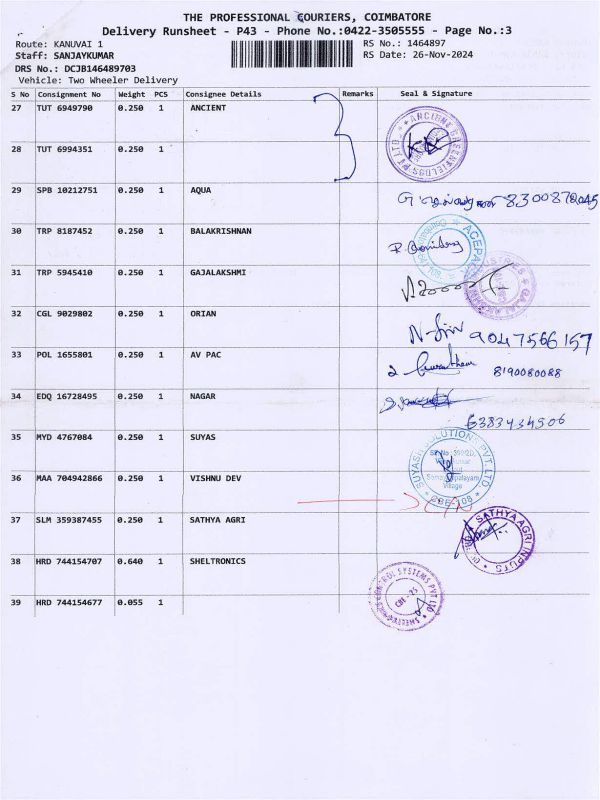 THE PROFESSIONAL COURIERS, COIMBATORE
Delivery Runsheet - P43 - Phone No.:0422-3505555 - Page No.:3
Route: KANUVAI 1 RS No.: 1464897
Staff: SANJAYKUMAR RS Date: 26-Nov-2024
DRS No.: DCJB146489703
Vehicle: Two Wheeler Delivery
S No Consignment No Weight PCS Consignee Details Remarks Seal & Signature
27 TUT 6949790 0.250 1 ANCIENT
28 TUT 6994351 0.250 1
29 SPB 10212751 0.250 1 AQUA
30 TRP 8187452 0.250 1 BALAKRISHNAN
31 TRP 5945410 0.250 1 GAJALAKSHMI
32 CGL 9029802 0.250 1 ORIAN
9047566157
33 POL 1655801 0.250 1 AV PAC
8190080088
34 EDQ 16728495 0.250 1 NAGAR
6383434506
35 MYD 4767084 0.250 1 SUYAS
36 MAA 704942866 0.250 1 VISHNU DEV
37 SLM 359387455 0.250 1 SATHYA AGRI
SATHYA AGRI INPUTS
38 HRD 744154707 0.640 1 SHELTRONICS
39 HRD 744154677 0.055 1